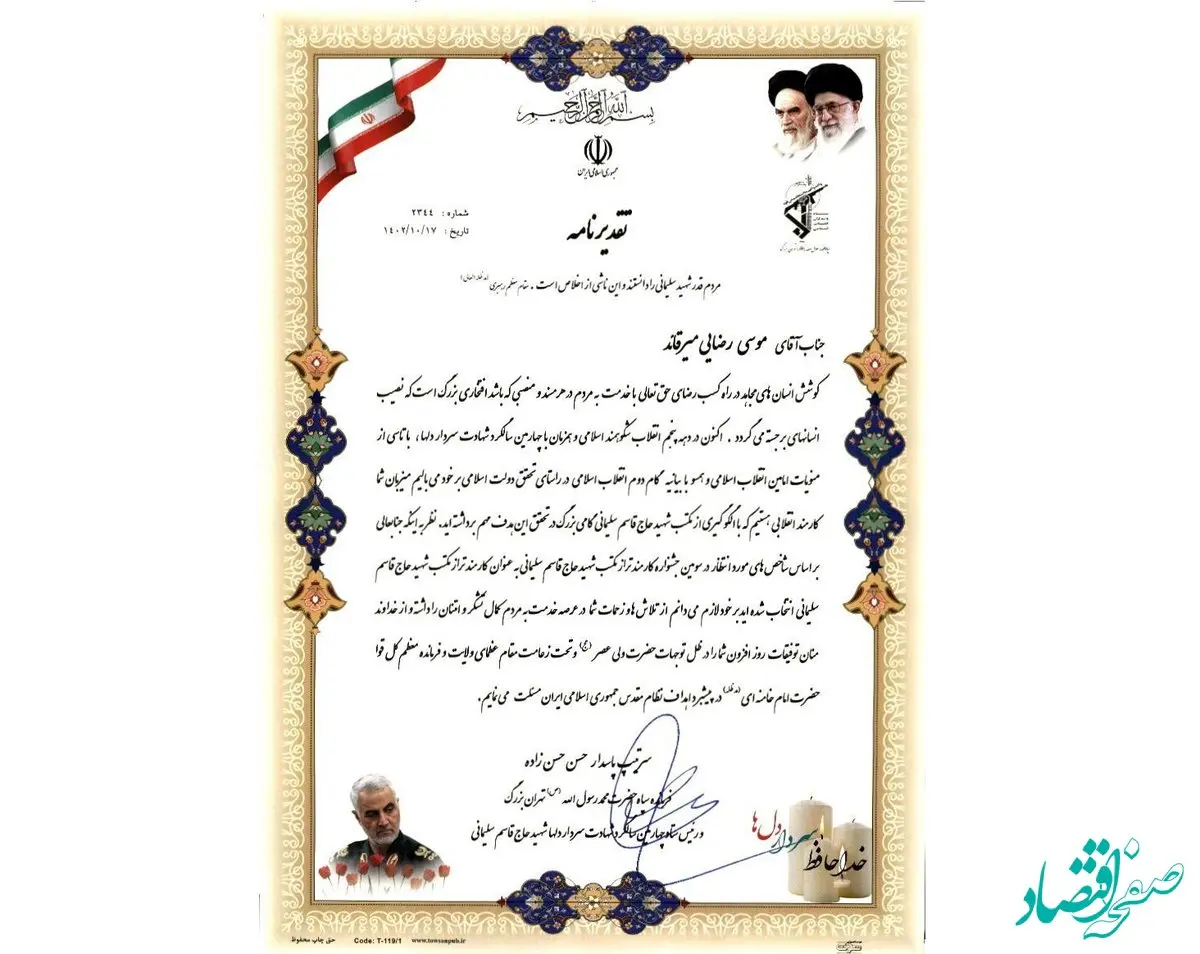 بسم الله الرحمن الرحیم
جمهوری اسلامی ایران
شماره : ۲۳٤٤
تاریخ : ۱٤۰۲/۱۰/۱۷
تقدیرنامه
مردم قدر شهید سلیمانی را دانستند و این ناشی از اخلاص است . مقام معظم رهبری (مدظله العالی)
جناب آقای موسی رضایی میرقائد
کوشش انسان های مجاهد در راه کسب رضای حق تعالی با خدمت به مردم در هر مسند و منصبی که باشد افتخاری بزرگ است که نصیب
انسانهای برجسته می گردد . اکنون در دهه پنجم انقلاب شکوهمند اسلامی و همزمان با چهارمین سالگرد شهادت سردار دلها، با تاسی از
منویات امامین انقلاب اسلامی و همسو با بیانیه گام دوم انقلاب اسلامی در راستای تحقق دولت اسلامی بر خود می بالیم میزبان شما
کارمند انقلابی هستیم که با الگوگیری از مکتب شهید حاج قاسم سلیمانی گامی بزرگ در تحقق این هدف مهم برداشته اید. نظر به اینکه جنابعالی
بر اساس شاخص های مورد انتظار در سومین جشنواره کارمند تراز مکتب شهید حاج قاسم سلیمانی به عنوان کارمند تراز مکتب شهید حاج قاسم
سلیمانی انتخاب شده اید بر خود لازم می دانم از تلاش ها و زحمات شما در عرصه خدمت به مردم کمال تشکر و امتنان را داشته و از خداوند
منان توفیقات روز افزون شما را در ظل توجهات حضرت ولی عصر (عج) و تحت زعامت مقام عظمای ولایت و فرمانده معظم کل قوا
حضرت امام خامنه ای (مدظله) در پیشبرد اهداف نظام مقدس جمهوری اسلامی ایران مسئلت می نمایم.
سرتیپ پاسدار حسن حسن زاده
فرمانده سپاه حضرت محمد رسول الله (ص) تهران بزرگ
و رئیس ستاد چهارمین سالگرد شهادت سردار دلها شهید حاج قاسم سلیمانی
سردار دل ها
خداحافظ
حق چاپ محفوظ Code: T-119/1 www.towsanpub.ir
صفحه اقتصاد